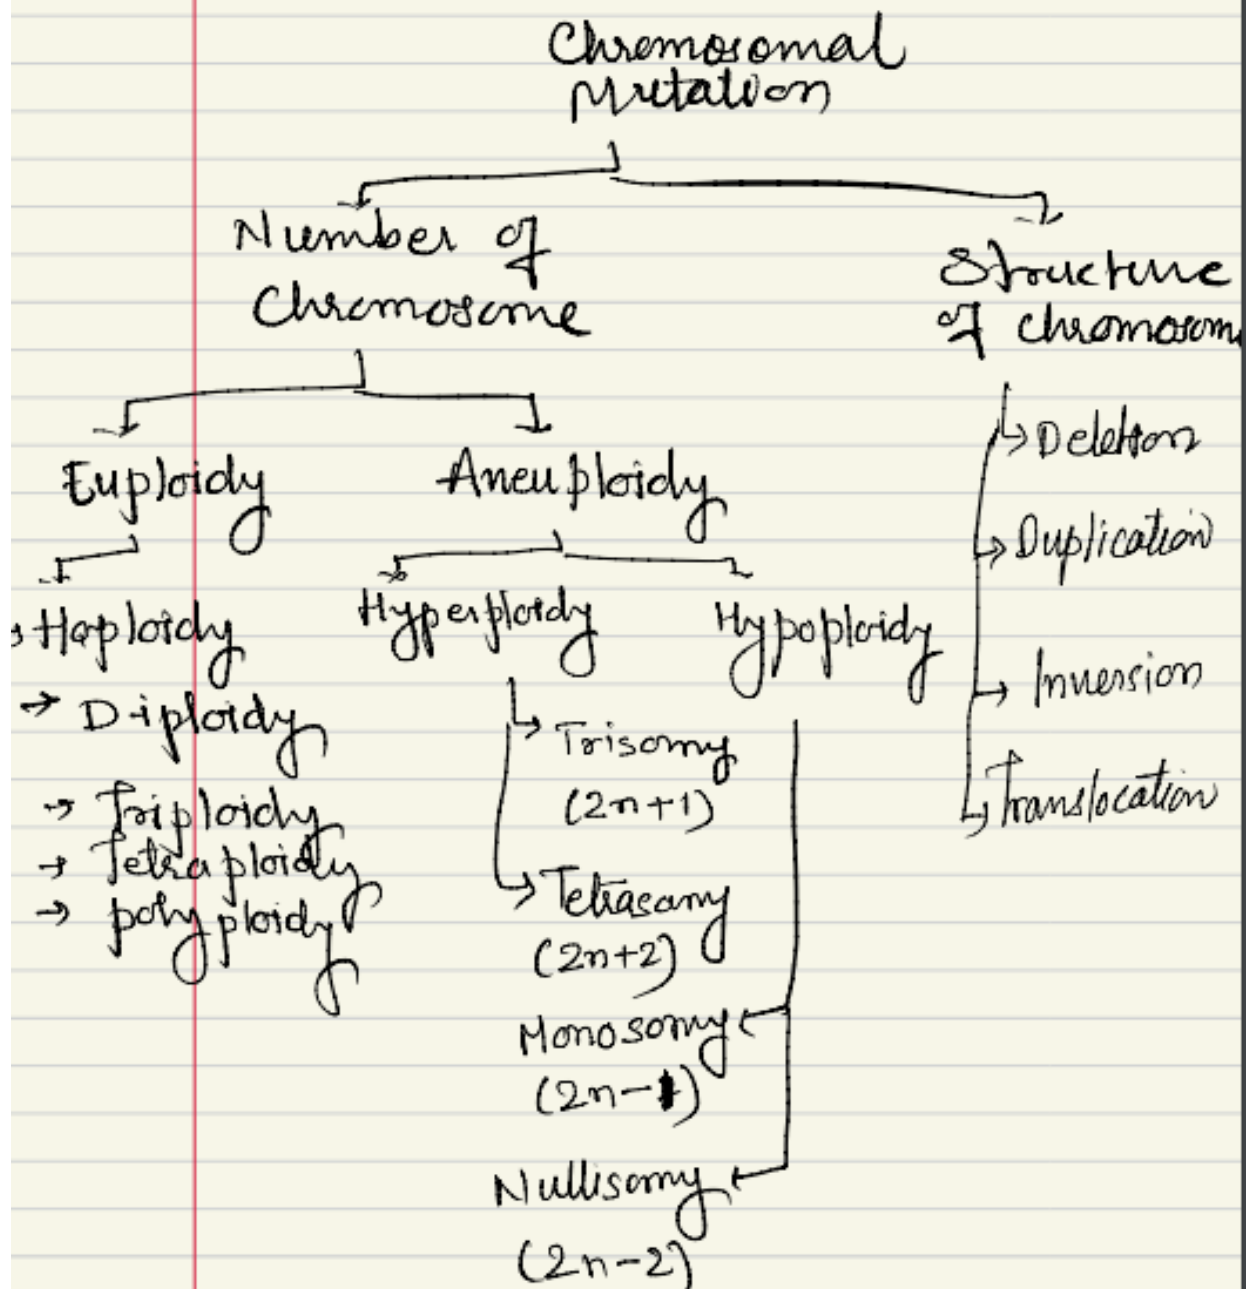 Chromosomal
Mutation
Number of
Chromosome
Structure
of chromosom
Euploidy
Aneuploidy
Deletion
Duplication
Inversion
Translocation
Haploidy
Diploidy
Triploidy
Tetraploidy
polyploidy
Hyperploidy
Trisomy
(2n+1)
Tetrasomy
(2n+2)
Hypoploidy
Monosomy
(2n-1)
Nullisomy
(2n-2)